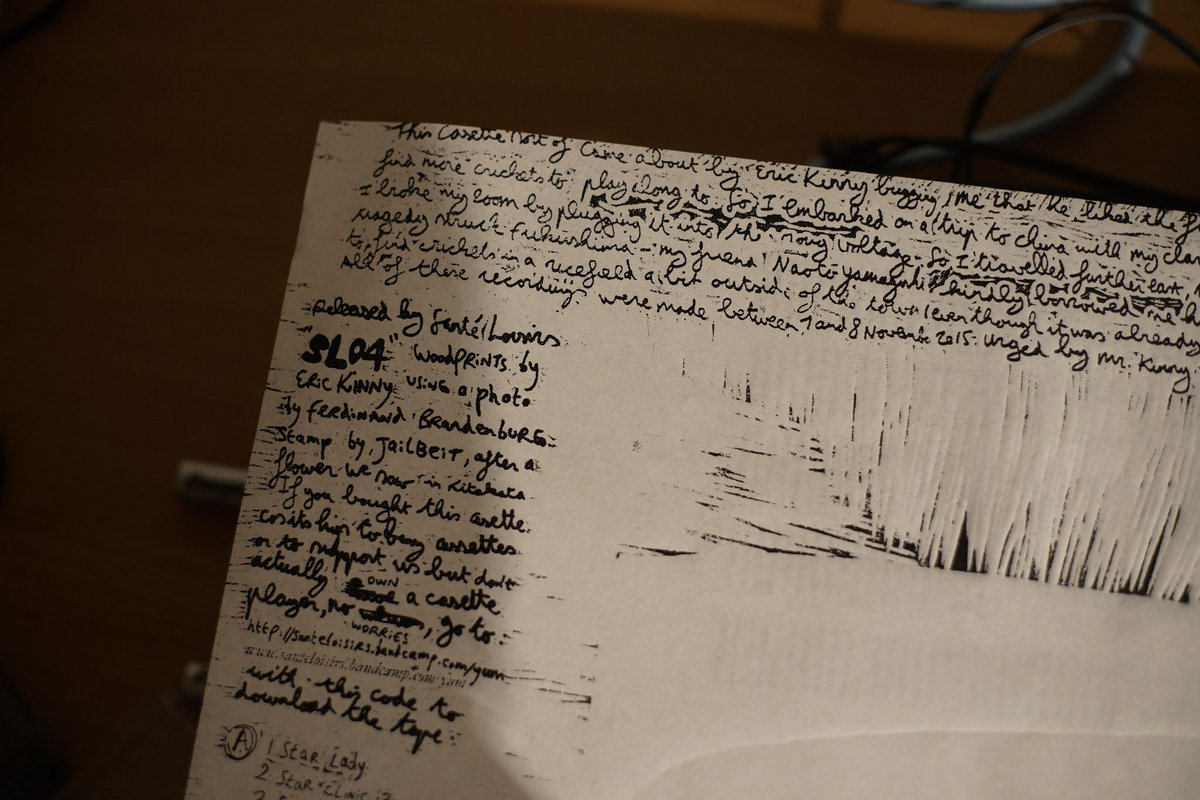 This Casette sort of Came about by Eric Kinny bugging me that he liked the
find more crickets to play along to. So I embarked on a trip to China with my
I broke my loom by plugging it into the rong voltage. So I travelled further east,
tragedy struck Fukushima - my friend Naoto Yamagishi kindly borrowed me
to find crickets in a ricefield a bit outside of the town (even though it was already
All of these recordings were made between 7 and 8 November 2015. Urged by Mr. Kinny
released by Santé Loisirs
"SL04" WOODPRINTS by
ERIC KINNY USING a photo
by FERDINAND BRANDENBURG.
Stamp by JAILBEIT, after a
flower we saw in Kitakata
If you bought this asette
cos its hip to buy cassettes
or to support us but don't
actually OWN a casette
player, no WORRIES, go to:
http://santeloisirs.bandcamp.com/yum
www.santeloisirs.bandcamp.com/yum
with this code to
download the tape:
A 1 Star Lady
2 Star